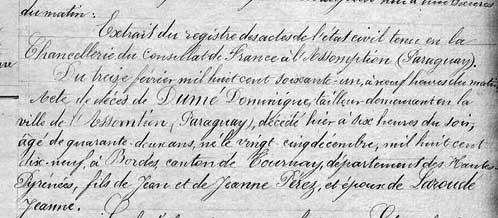 du matin :
Extrait du registre des actes de l'état civil tenu en la
Chancellerie du Consulat de France à l'Assomption (Paraguay).
Du treize février mil huit cent soixante-un, à neuf heures du matin
Acte de décès de Dumé Dominique, tailleur demeurant en la
ville de l'Assomtion, (Paraguay), décédé hier à six heures du soir,
âgé de quarante-deux ans, né le vingt-cinq décembre, mil huit cent
dix-neuf, à Bordes, canton de Tournay, département des Hautes-
Pyrénées, fils de Jean et de Jeanne Pérez, et époux de Laroude
Jeanne.